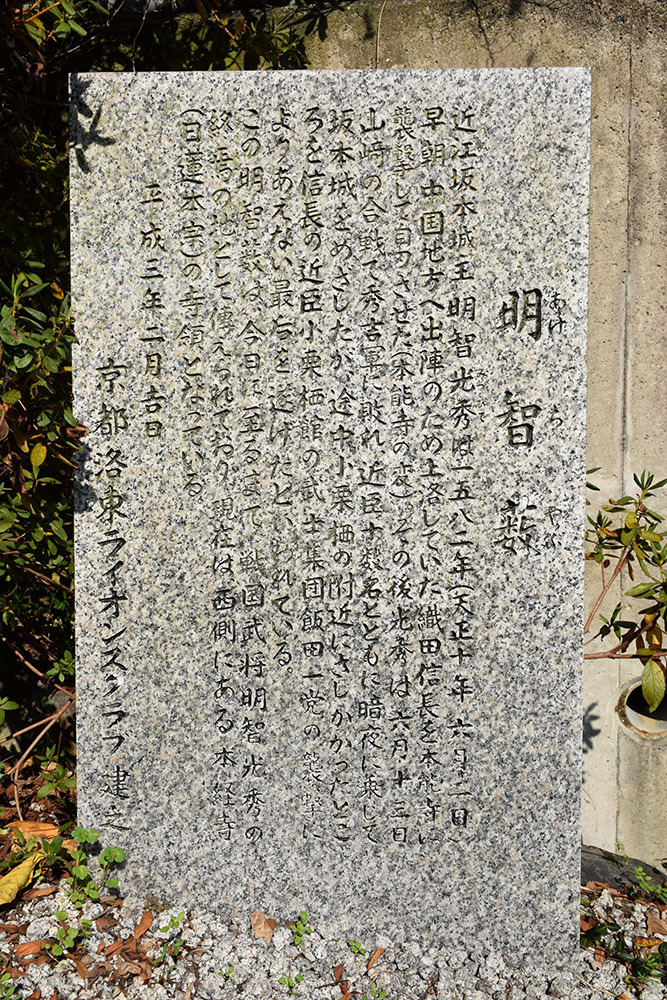 明智藪
あけ ち やぶ
近江坂本城主明智光秀は一五八二年(天正十年六月二日)
みつひで
早朝中国地方へ出陣のため上洛していた織田信長を本能寺に
襲撃して自刃させた(本能寺の変)。その後光秀は六月十三日
山崎の合戦で秀吉軍に敗れ近臣十数名とともに暗夜に乗じて
坂本城をめざしたが、途中小栗栖の附近にさしかかったとこ
ろを信長の近臣小栗栖館の武士集団飯田一党の襲撃に
よりあえない最后を遂げたといわれている。
この明智薮は、今日に至るまで、戦国武将明智光秀の
終焉の地として傳えられており現在は西側にある本経寺
(日蓮本宗)の寺領となっている。
平成三年二月吉日
京都洛東ライオンズクラブ建之